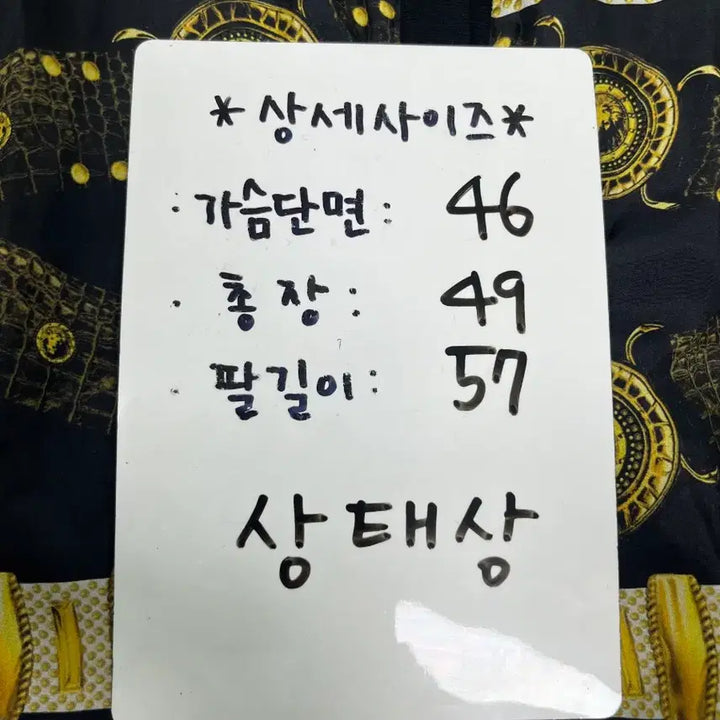 *상세사이즈*
· 가슴단면: 46
· 총장: 49
· 팔길이: 57
상태상